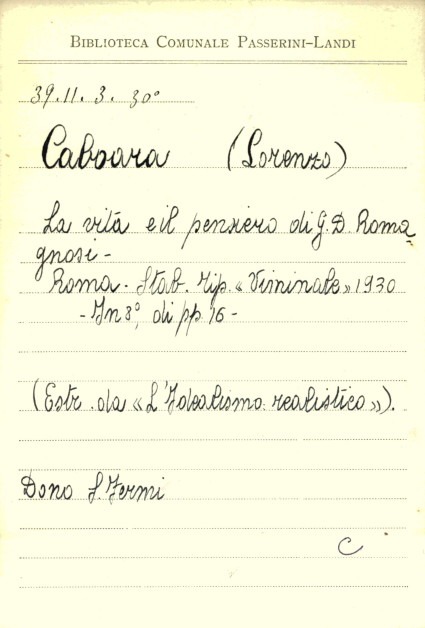 BIBLIOTECA COMUNALE PASSERINI-LANDI
39.11.3.30°
Caboara (Lorenzo)
La vita e il pensiero di G.D. Roma-
gnosi -
Roma. Stab. Tip. « Viminale » 1930
- In 8°, di pp. 16 -
(Estr. da « L'Idealismo realistico »).
Dono S. Fermi
C